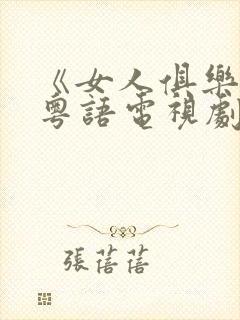 《女人俱樂
粵語電視劇
張蓓蓓